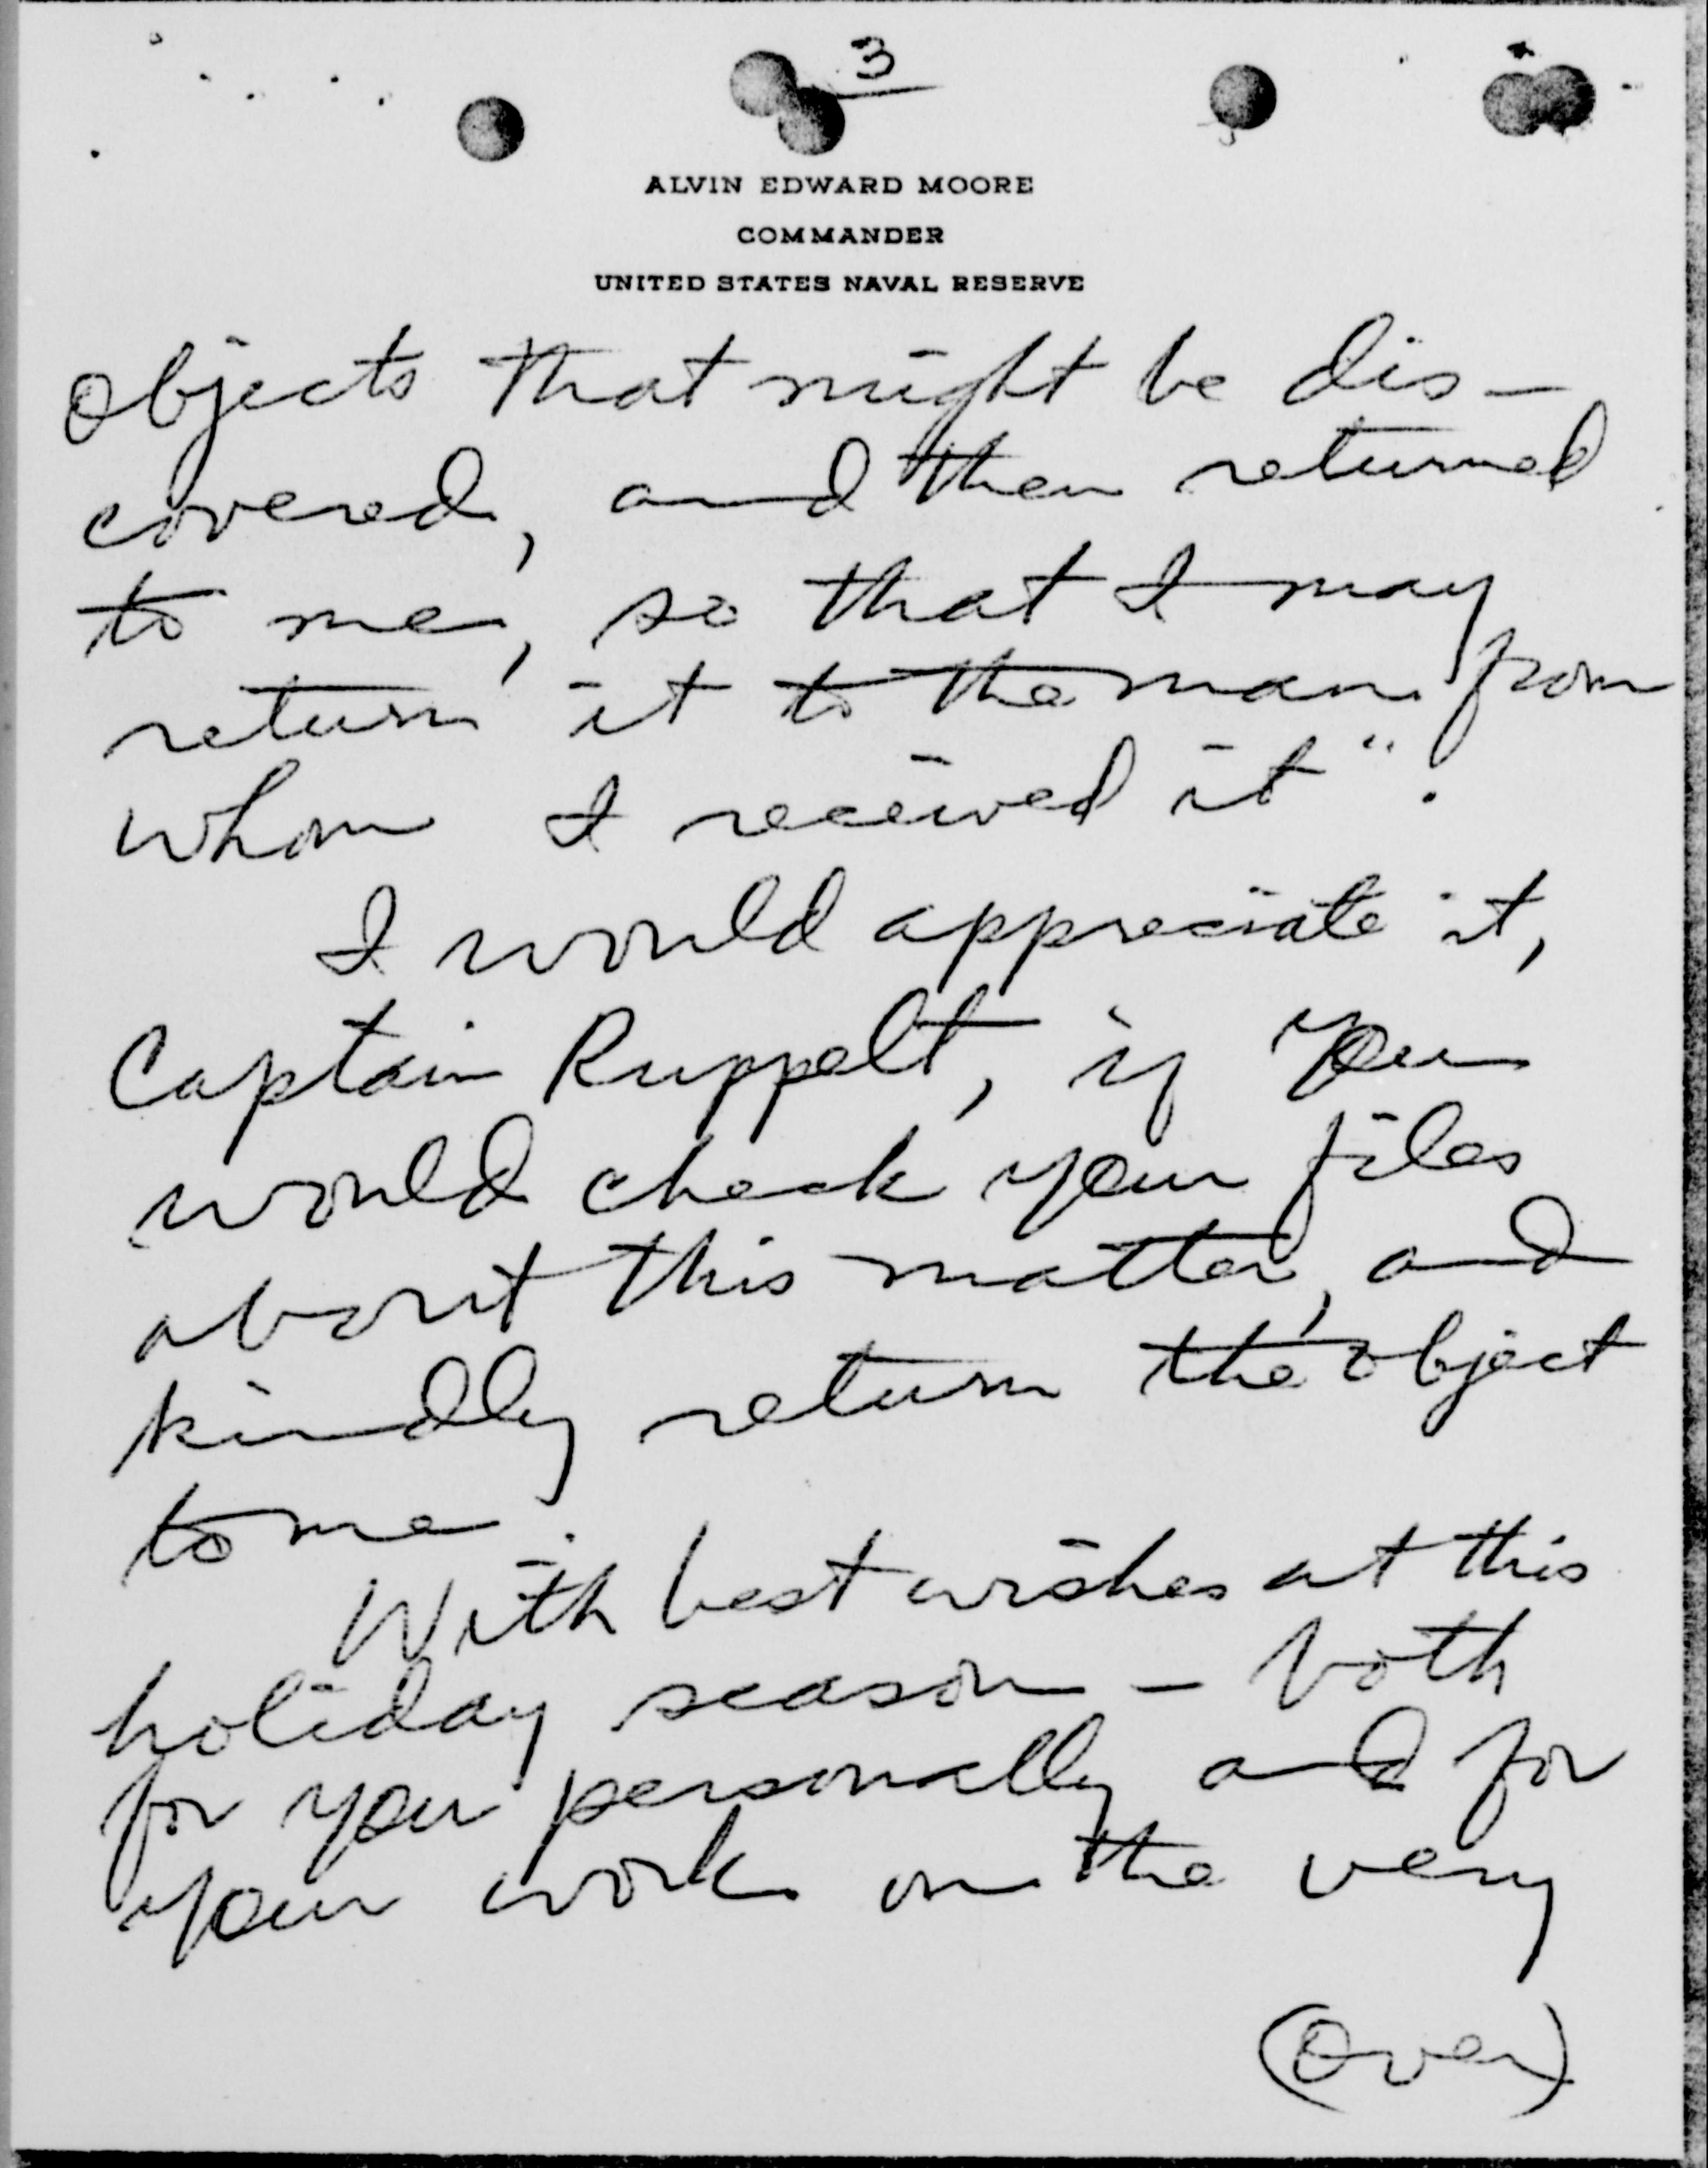 3
ALVIN EDWARD MOORE
COMMANDER
UNITED STATES NAVAL RESERVE
objects that might be dis-
covered, and then returned
to me, so that I may
return it to the man from
whom I received it".
I would appreciate it,
Captain Ruppelt, if you
would check your files
about this matter, and
kindly return the object
to me.
With best wishes at this
holiday season - both
for you personally and for
your work on the very
(Over)